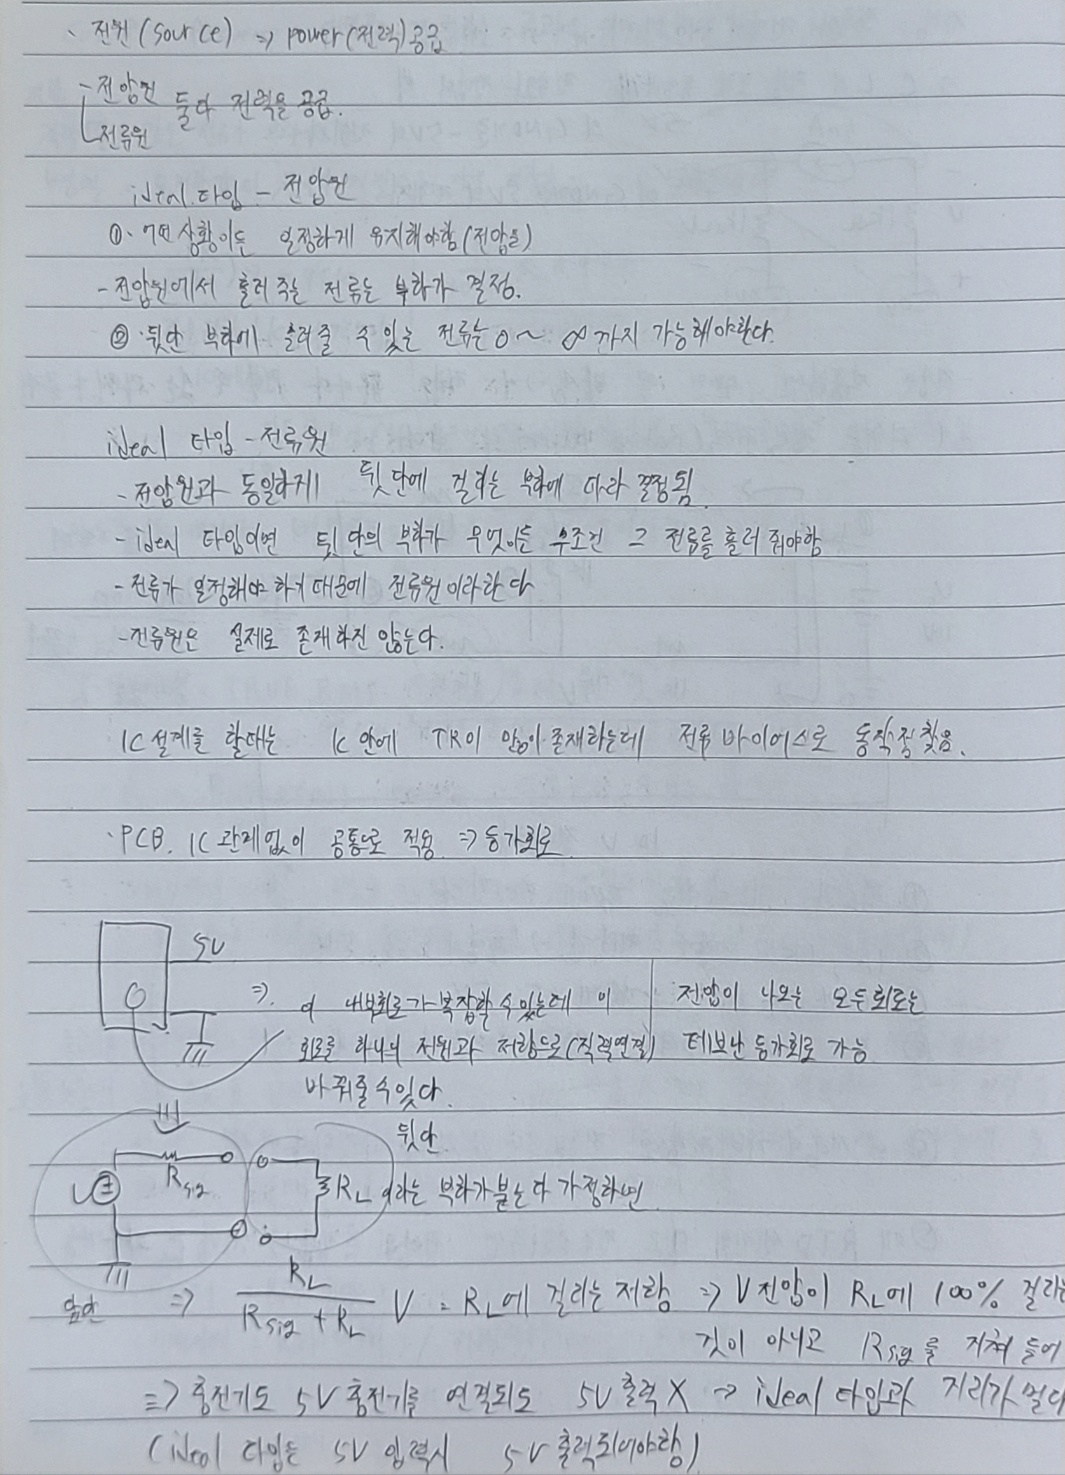 · 전원(source) => power(전력)공급
- 전압원
둘다 전력을 공급.
전류원
ideal 타입 - 전압원
①. 어떤 상황이든 일정하게 유지해야함(전압을)
- 전압원에서 흘러 주는 전류는 부하가 결정.
②. 뒷단 부하에 흘려줄 수 있는 전류는 0 ~ ∞ 까지 가능해야한다.
ideal 타입 - 전류원
- 전압원과 동일하게 뒷단에 걸리는 부하에 따라 결정됨
- ideal 타입이면 뒷단의 부하가 무엇이든 무조건 그 전류를 흘려 줘야함
- 전류가 일정해야 하기 때문에 전류원이라한다
- 전류원은 실제로 존재하진 않는다.
IC설계를 할때는 IC 안에 TR이 많이 존재하는데 전류 바이어스로 동작점 찾음.
· PCB. IC 관계없이 공통으로 적용 => 등가회로
5V
=> 여 내부회로가 복잡할 수 있는데 이
회로를 하나의 전원과 저항으로(직렬연결)
바꿔줄 수 있다.
전압이 나오는 모든회로는
테브난 등가회로 가능
뒷단
V Rsig RL 이라는 부하가 붙는다 가정하면
앞단 => RL / (Rsig + RL) V = RL에 걸리는 저항 => V 전압이 RL에 100% 걸리는
것이 아니고 Rsig를 거쳐 들어
=> 충전기도 5V 충전기를 연결되도 5V 출력 X -> ideal 타입과 거리가 멀다
(ideal 타입은 5V 입력시 5V 출력되어야함)